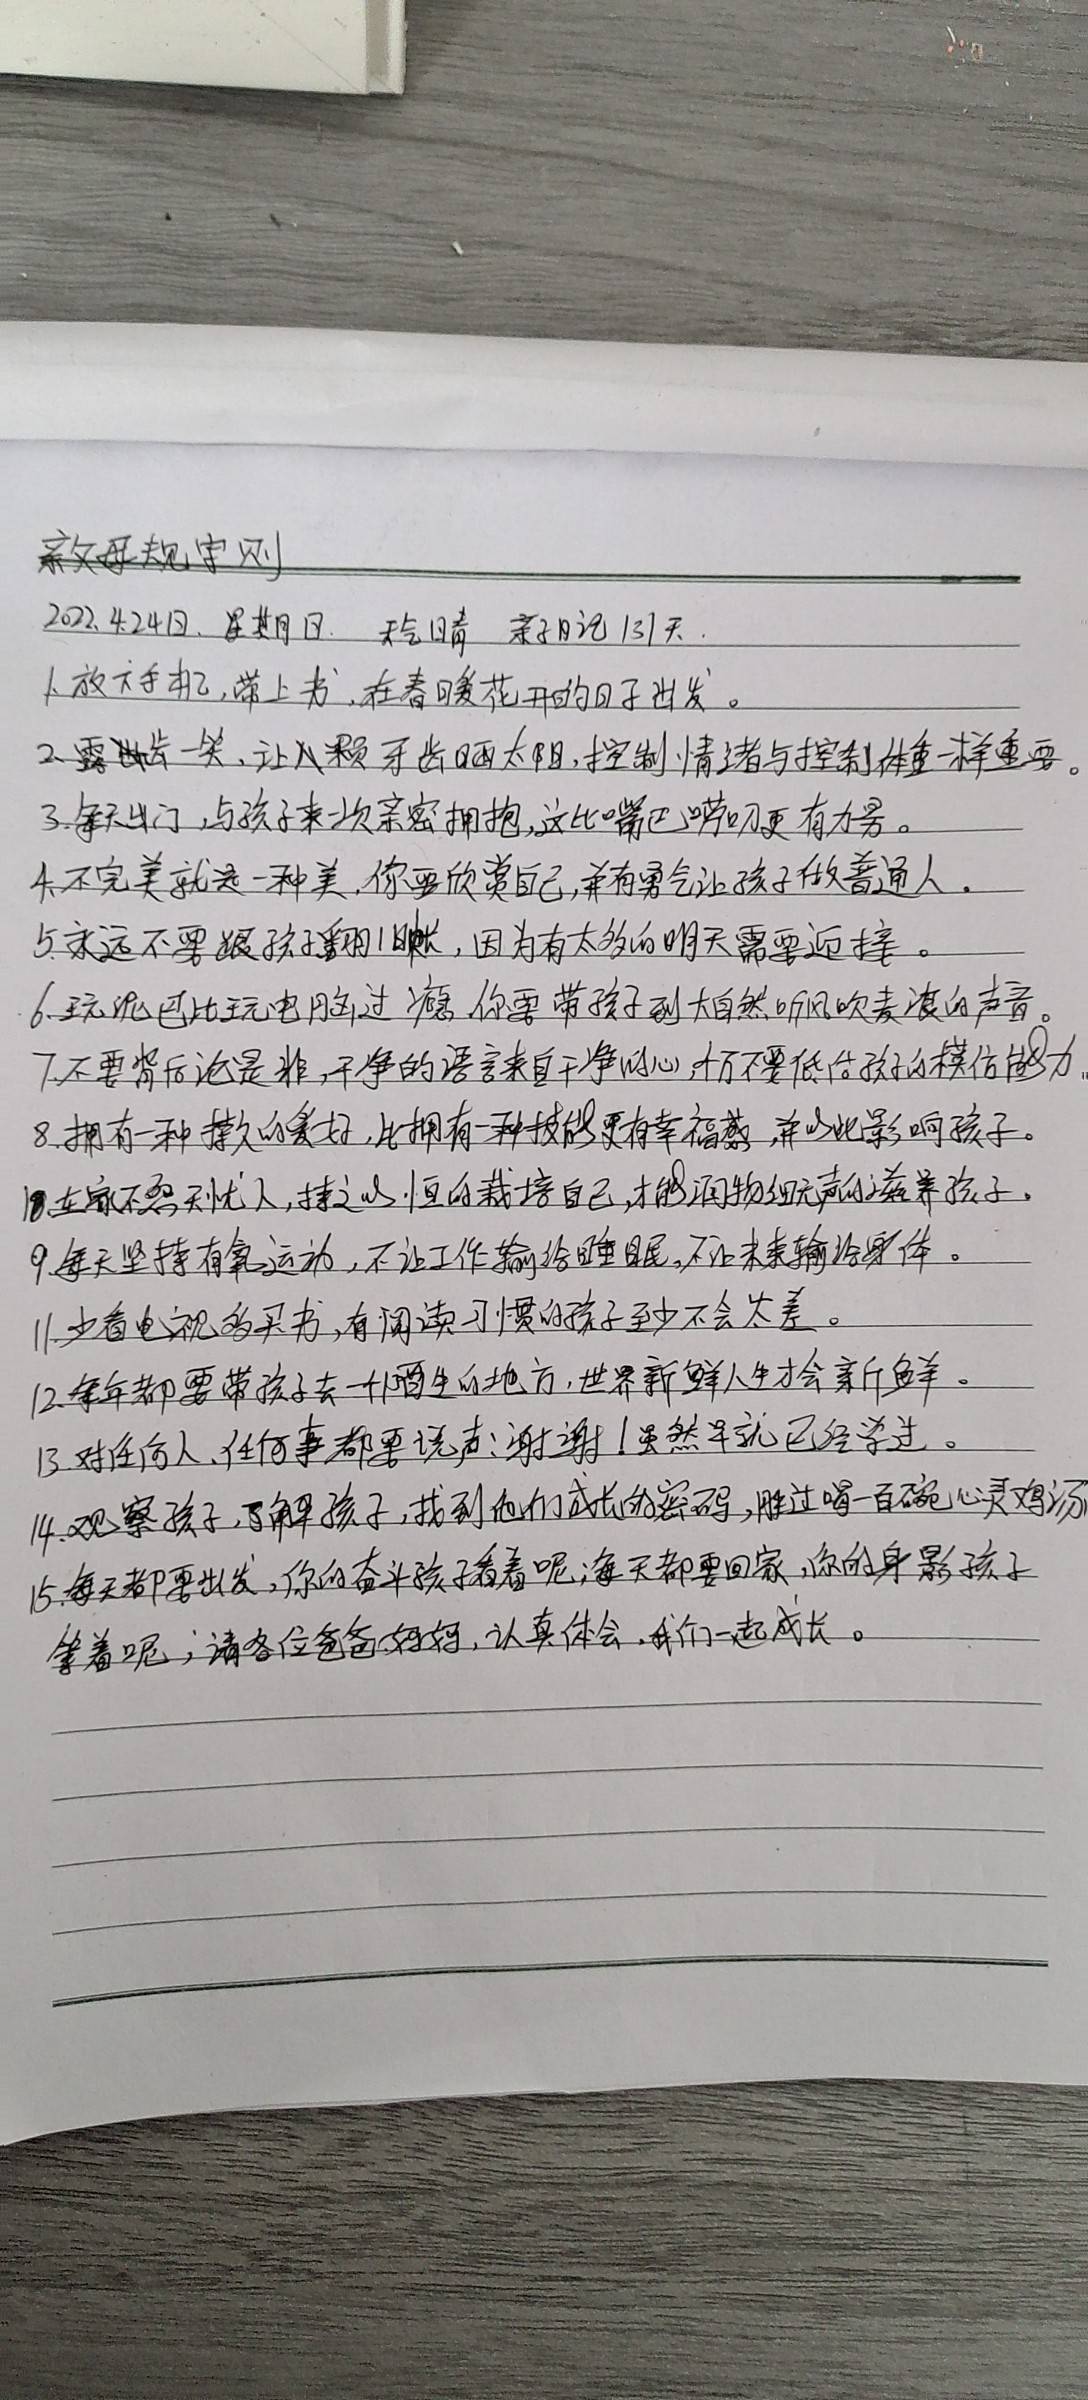 父母规守则
2022.4.24日. 星期日. 天气晴 亲子日记131天.
1.放下手机,带上书,在春暖花开的日子出发。
2.露齿一笑,让八颗牙齿晒太阳,控制情绪与控制体重一样重要。
3.每天出门,与孩子来一次亲密拥抱,这比嘴巴唠叨更有力量。
4.不完美就是一种美,你要欣赏自己,并有勇气让孩子做普通人.
5.永远不要跟孩子翻旧帐,因为有太多的明天需要迎接。
6.玩泥巴比玩电脑过瘾,你要带孩子到大自然听风吹麦浪的声音。
7.不要背后论是非,干净的语言来自干净的心,千万不要低估孩子的模仿能力
8.拥有一种持久的爱好,比拥有一种技能更有幸福感,并以此影响孩子。
10.在家不怨天忧人,持之以恒的栽培自己,才能润物细无声的滋养孩子。
9.每天坚持有氧运动,不让工作输给睡眠,不让未来输给身体。
11.少看电视多买书,有阅读习惯的孩子至少不会太差。
12.每年都要带孩子去一个陌生的地方,世界新鲜人生才会新鲜。
13.对任何人、任何事都要说声:谢谢!虽然早就已经学过。
14.观察孩子,了解孩子,找到他们成长的密码,胜过喝一百碗心灵鸡汤
15.每天都要出发,你的奋斗孩子看着呢;每天都要回家,你的身影孩子
等着呢;请各位爸爸妈妈,认真体会,我们一起成长。